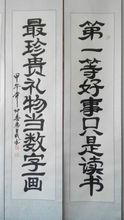 第一等好事只是读书
最珍贵礼物当数字画
甲午年